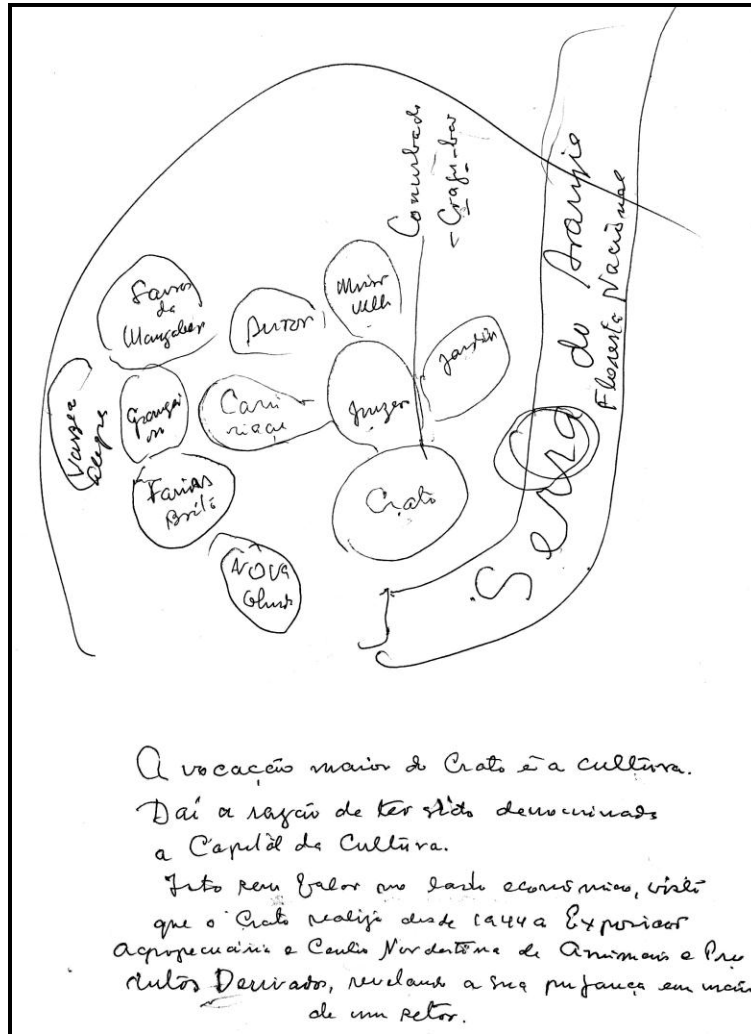 Conurbado
- Crajubar
Serra do Araripe
Floresta Nacional
Lavras
da
Mangabeira
Aurora
Jardim
Juazeiro
Cariri
Granjei
ro
Varzea
Alegre
Farias
Brito
Crato
NOVA
Olinda
A vocação maior do Crato é a cultura.
Daí a razão de ter sido denominada
a Capital da Cultura.
Isto sem falar no lado econômico, visto
que o Crato realiza desde 1944 a Exposição
Agropecuária e Centro Nordestina de Animais e Pro
dutos Derivados, revelando a sua pujança em mais
de um setor.